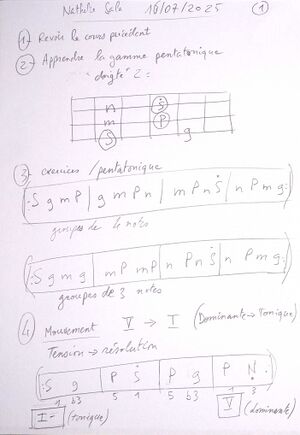 Nathalie Sala 16/07/2025 1
1) Revoir le cours précédent
2) Apprendre la gamme pentatonique
doigté 2 :
n Ṡ
m P
S g
3) exercices / pentatonique
(: S g m P | g m P n | m P n Ṡ | n P m g :)
groupes de 4 notes
(: S g m g | m P m P | n P n Ṡ | n P m g :)
groupes de 3 notes
4) Mouvement V → I (Dominante → Tonique)
Tension → résolution
: S g | P Ṡ | P g | P N :
1 b3 5 1 5 b3 1 3
I- (tonique) V (dominante)